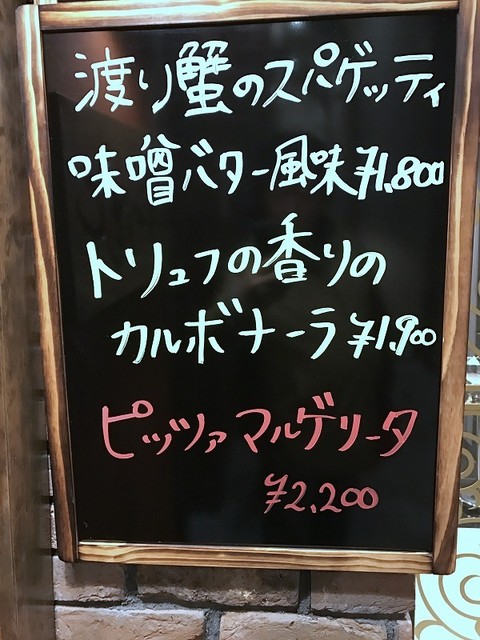 渡り蟹のスパゲッティ
味噌バター風味¥1,800
トリュフの香りの
カルボナーラ¥1,900
ピッツァマルゲリータ
¥2,200